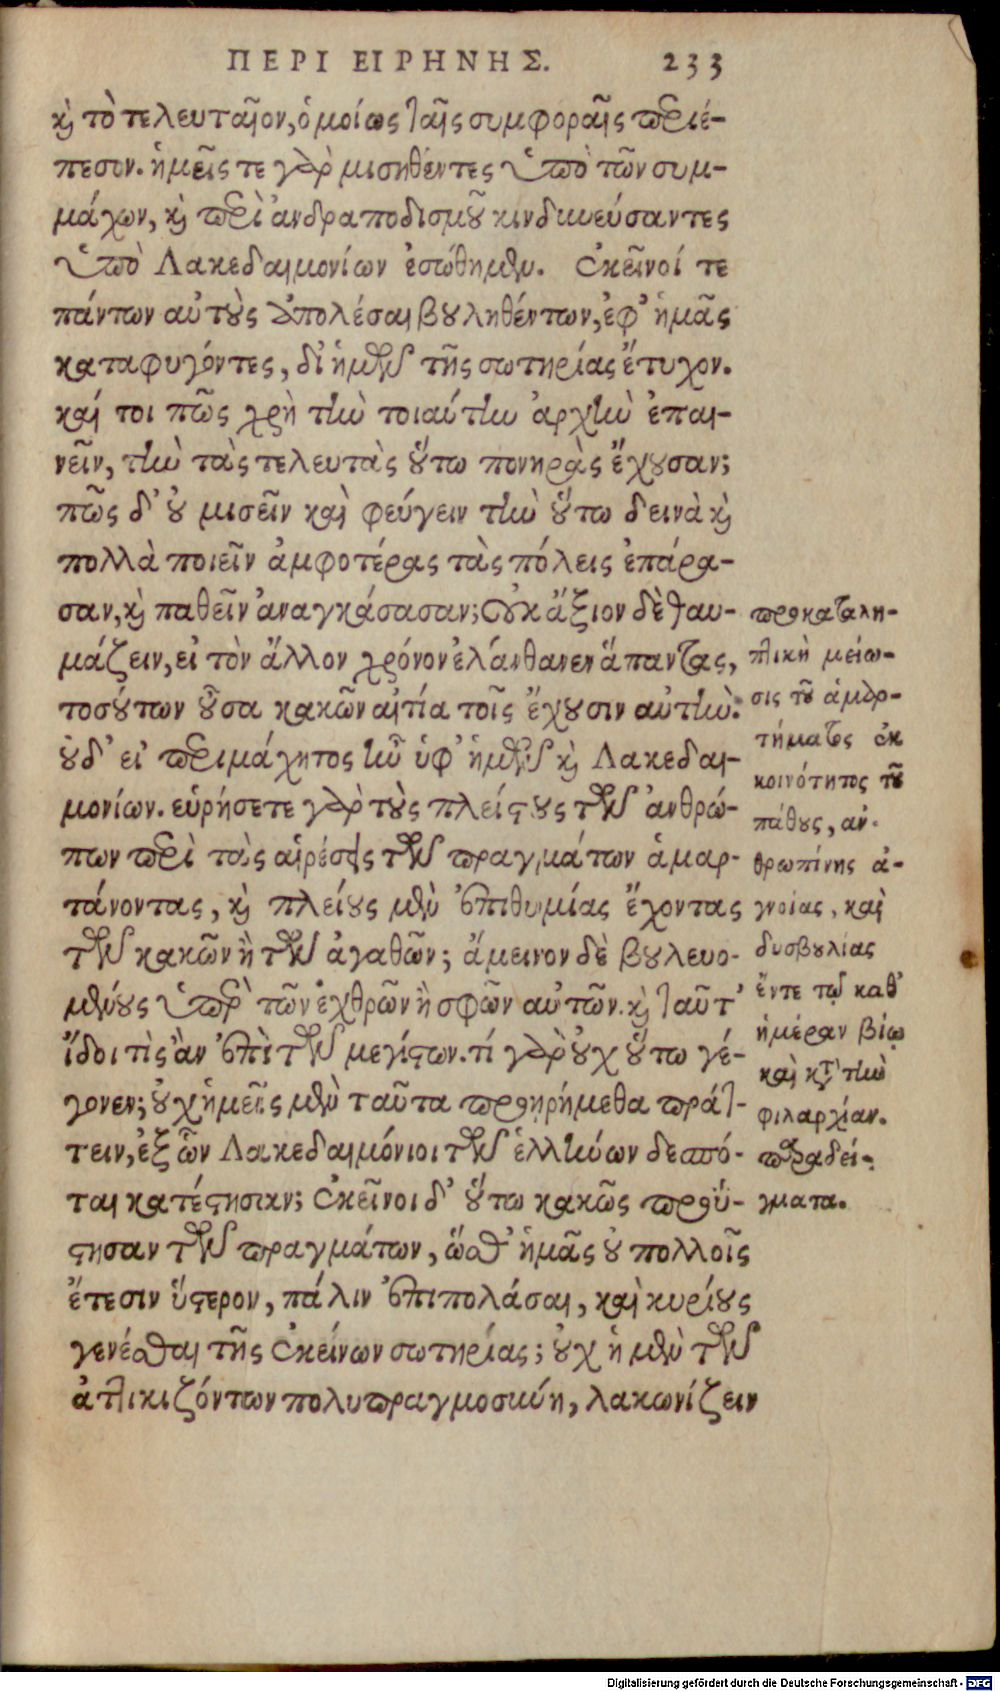 ΠΕΡΙ ΕΙΡΗΝΗΣ. 233
καὶ τὸ τελευταῖον, ὁμοίως ταῖς συμφοραῖς περιέ-
πεσον. ἡμεῖς τε γὰρ μισηθέντες ὑπὸ τῶν συμ-
μάχων, καὶ περὶ ἀνδραποδισμοῦ κινδυνεύσαντες
ὑπὸ Λακεδαιμονίων ἐσώθημεν. ἐκεῖνοί τε
πάντων αὐτοὺς ἀπολέσαι βουληθέντων, ἐφ' ἡμᾶς
καταφυγόντες, δι' ἡμῶν τῆς σωτηρίας ἔτυχον.
καί τοι πῶς χρὴ τὴν τοιαύτην ἀρχὴν ἐπαι-
νεῖν, τὴν τὰς τελευτὰς οὕτω πονηρὰς ἔχουσαν;
πῶς δ' οὐ μισεῖν καὶ φεύγειν τὴν οὕτω δεινὰ καὶ
πολλὰ ποιεῖν ἀμφοτέρας τὰς πόλεις ἐπάρα-
σαν, καὶ παθεῖν ἀναγκάσασαν; Οὐκ ἄξιον δὲ θαυ-
μάζειν, εἰ τὸν ἄλλον χρόνον ἐλάνθανεν ἅπαντας,
τοσούτων οὖσα κακῶν αἰτία τοῖς ἔχουσιν αὐτήν.
οὐδ' εἰ περιμάχητος ἦν ὑφ' ἡμῶν καὶ Λακεδαι-
μονίων. εὑρήσετε γὰρ τοὺς πλείστους τῶν ἀνθρώ-
πων περὶ τὰς αἱρέσεις τῶν πραγμάτων ἁμαρ-
τάνοντας, καὶ πλείους μὲν ἐπιθυμίας ἔχοντας
τῶν κακῶν ἢ τῶν ἀγαθῶν; ἄμεινον δὲ βουλευο-
μένους ὑπὲρ τῶν ἐχθρῶν ἢ σφῶν αὐτῶν. καὶ ταῦτ'
ἴδοι τὶς ἂν ἐπὶ τῶν μεγίστων. τί γὰρ οὐχ οὕτω γέ-
γονεν; οὐχ ἡμεῖς μὲν ταῦτα προῃρήμεθα πράτ-
τειν, ἐξ ὧν Λακεδαιμόνιοι τῶν ἑλλήνων δεσπό-
ται κατέστησαν; ἐκεῖνοι δ' οὕτω κακῶς πρού-
στησαν τῶν πραγμάτων, ὥσθ' ἡμᾶς οὐ πολλοῖς
ἔτεσιν ὕστερον, πάλιν ἐπιπολάσαι, καὶ κυρίους
γενέσθαι τῆς ἐκείνων σωτηρίας; οὐχ ἡ μὲν τῶν
ἀττικιζόντων πολυπραγμοσύνη, λακωνίζειν
προκαταλη-
πτικὴ μείω-
σις τοῦ ἁμαρ-
τήματος ἐκ
κοινότητος τοῦ
πάθους, ἀν-
θρωπίνης ἀ-
γνοίας, καὶ
δυσβουλίας
ἔντε τῷ καθ'
ἡμέραν βίῳ
καὶ κατὰ τὴν
φιλαρχίαν.
παραδεί-
γματα.
Digitalisierung gefördert durch die Deutsche Forschungsgemeinschaft - DFG